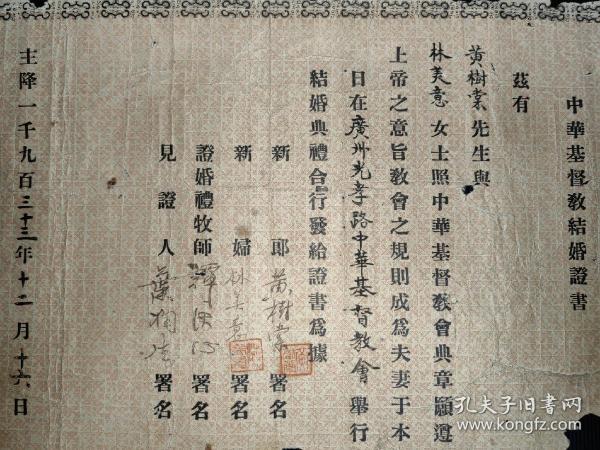 中華基督教結婚證書
茲有
黃樹棠先生與
林美意女士照中華基督教會典章願遵
上帝之意旨教會之規則成爲夫妻于本
日在廣州光孝路中華基督教會舉行
結婚典禮合行發給證書爲據
新郎 黃樹棠 署名
新婦 林美意 署名
證婚禮牧師 署名
見證人 署名
主降一千九百三十三年十二月十六日
孔夫子旧书网
www.kongfz.com